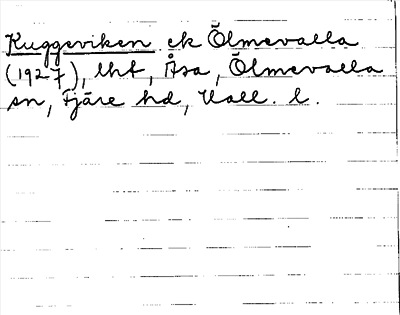 Kuggeviken ek Ölmevalla
(1927), lht, Åsa, Ölmevalla
sn, Fjäre hd, Hall. l.